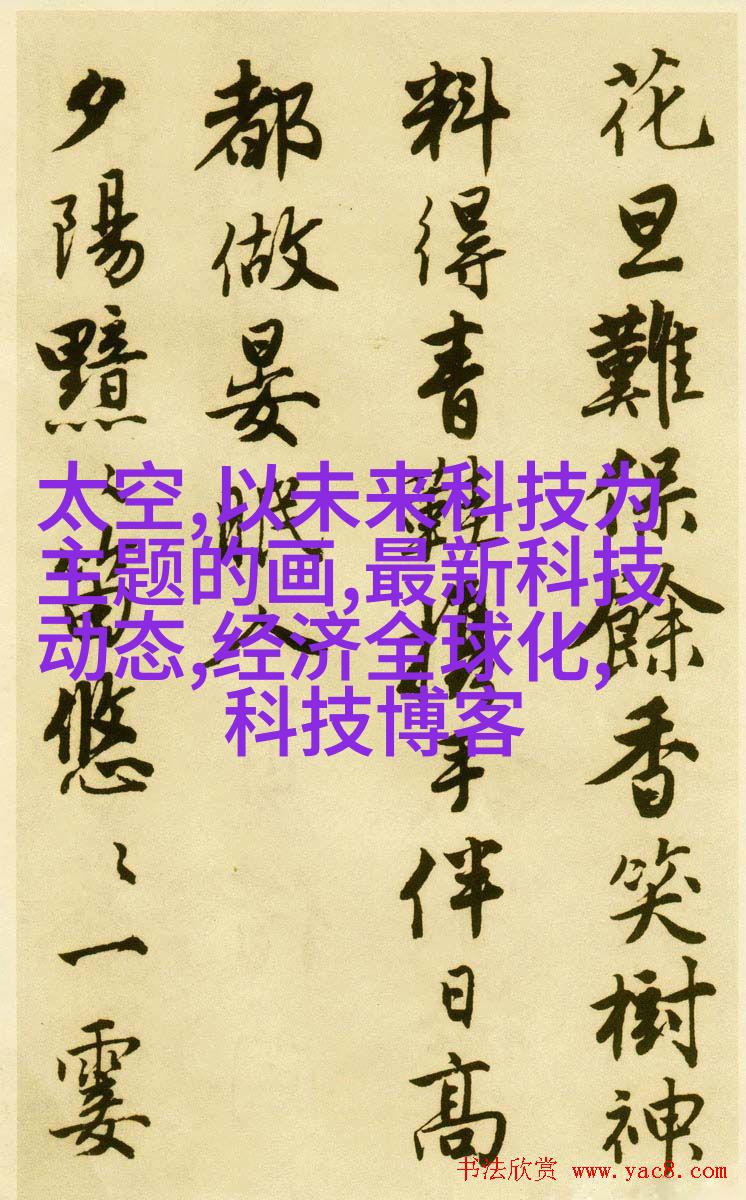 花旦難保餘香笑樹神
料得青鞋手伴日高
都做晏眠人
夕陽黯悠〻一霎
太空,以未来科技为
主题的画,最新科技
动态,经济全球化,
科技博客
书法欣赏 www.yac8.com